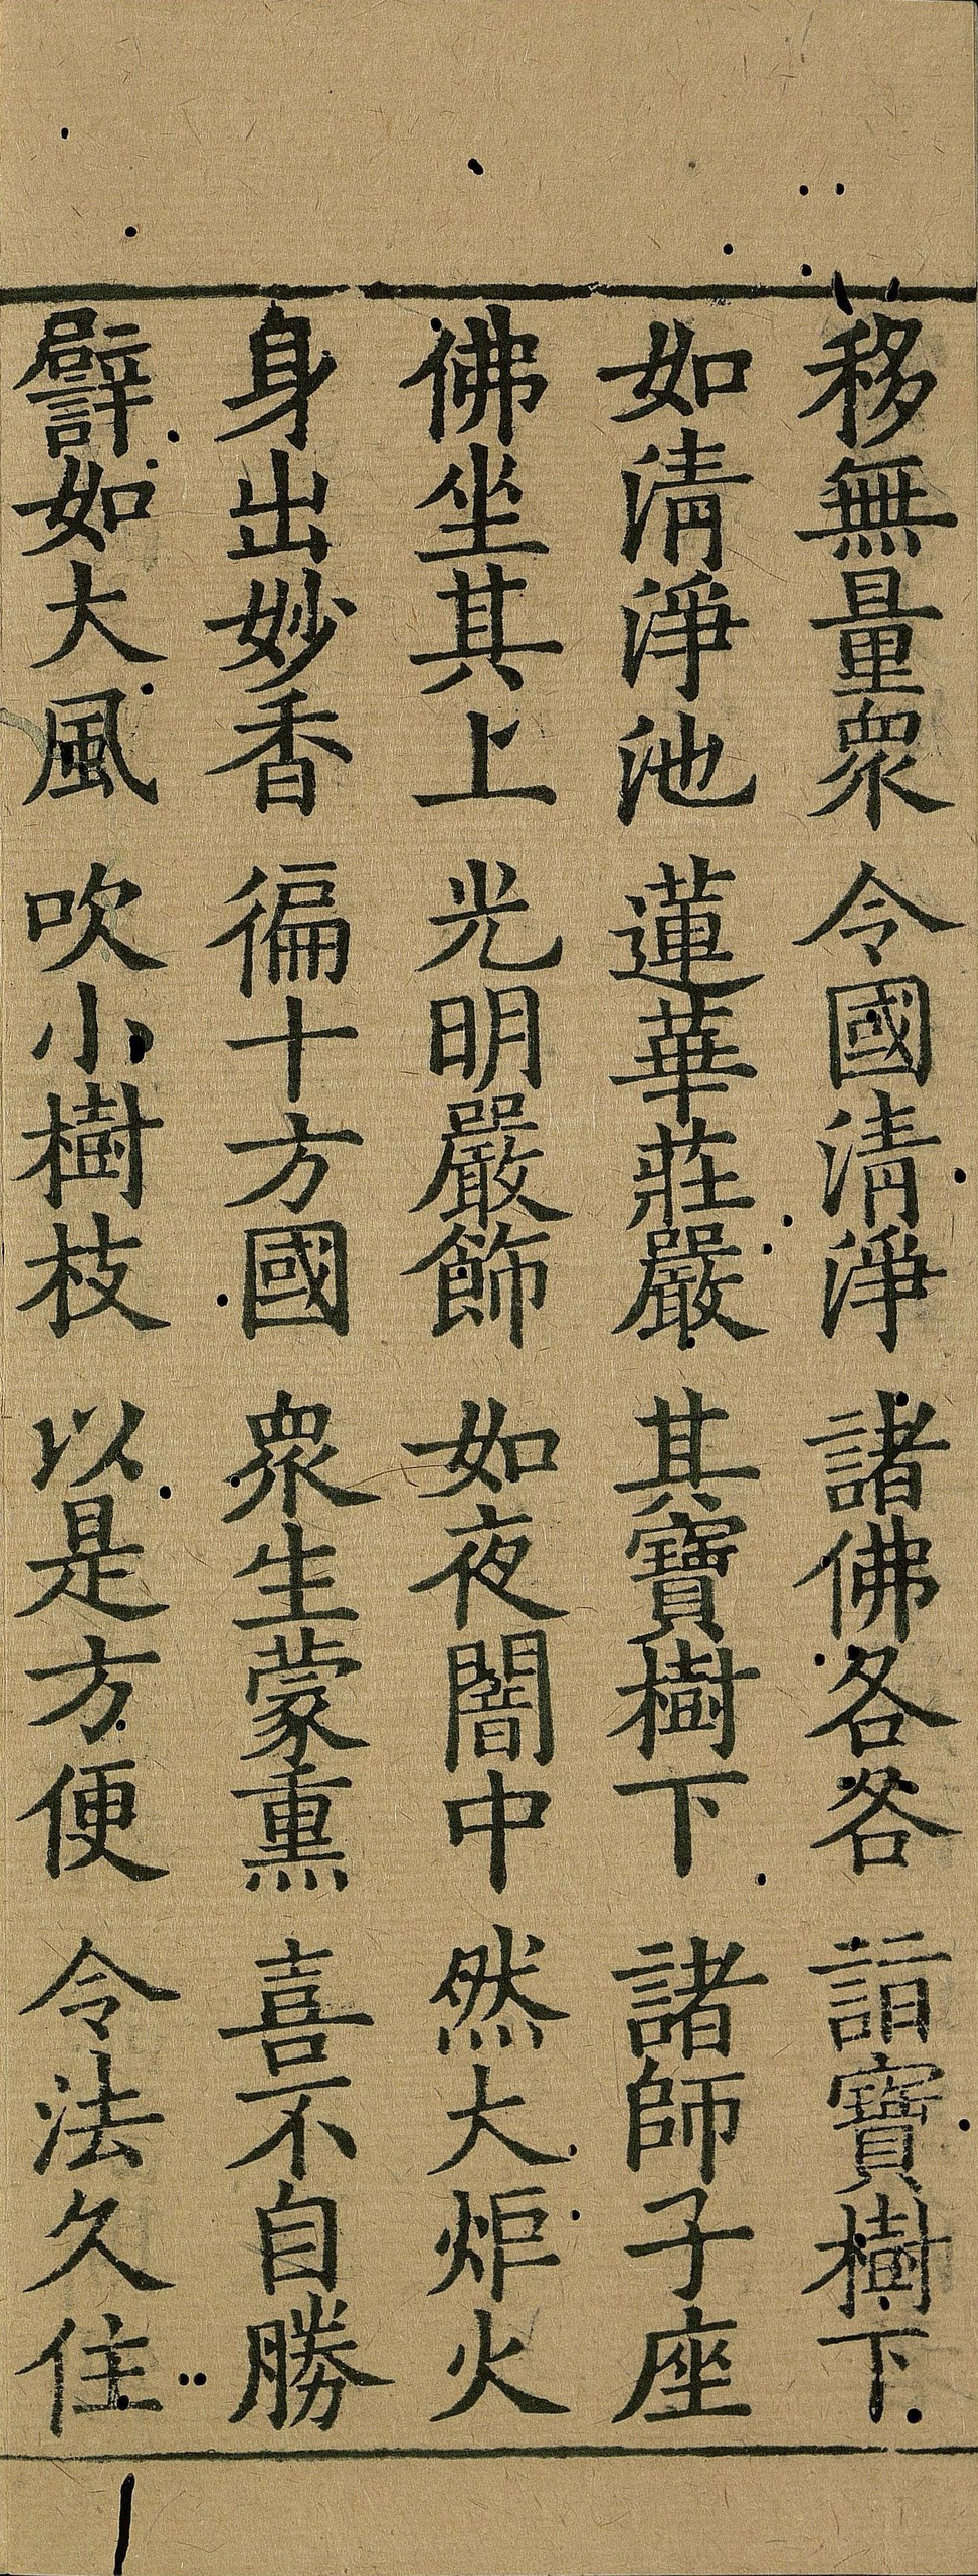 移無量衆 令國清淨 諸佛各各 詣寶樹下
如清淨池 蓮華莊嚴 其寶樹下 諸師子座
佛坐其上 光明嚴飾 如夜闇中 然大炬火
身出妙香 徧十方國 衆生蒙熏 喜不自勝
譬如大風 吹小樹枝 以是方便 令法久住